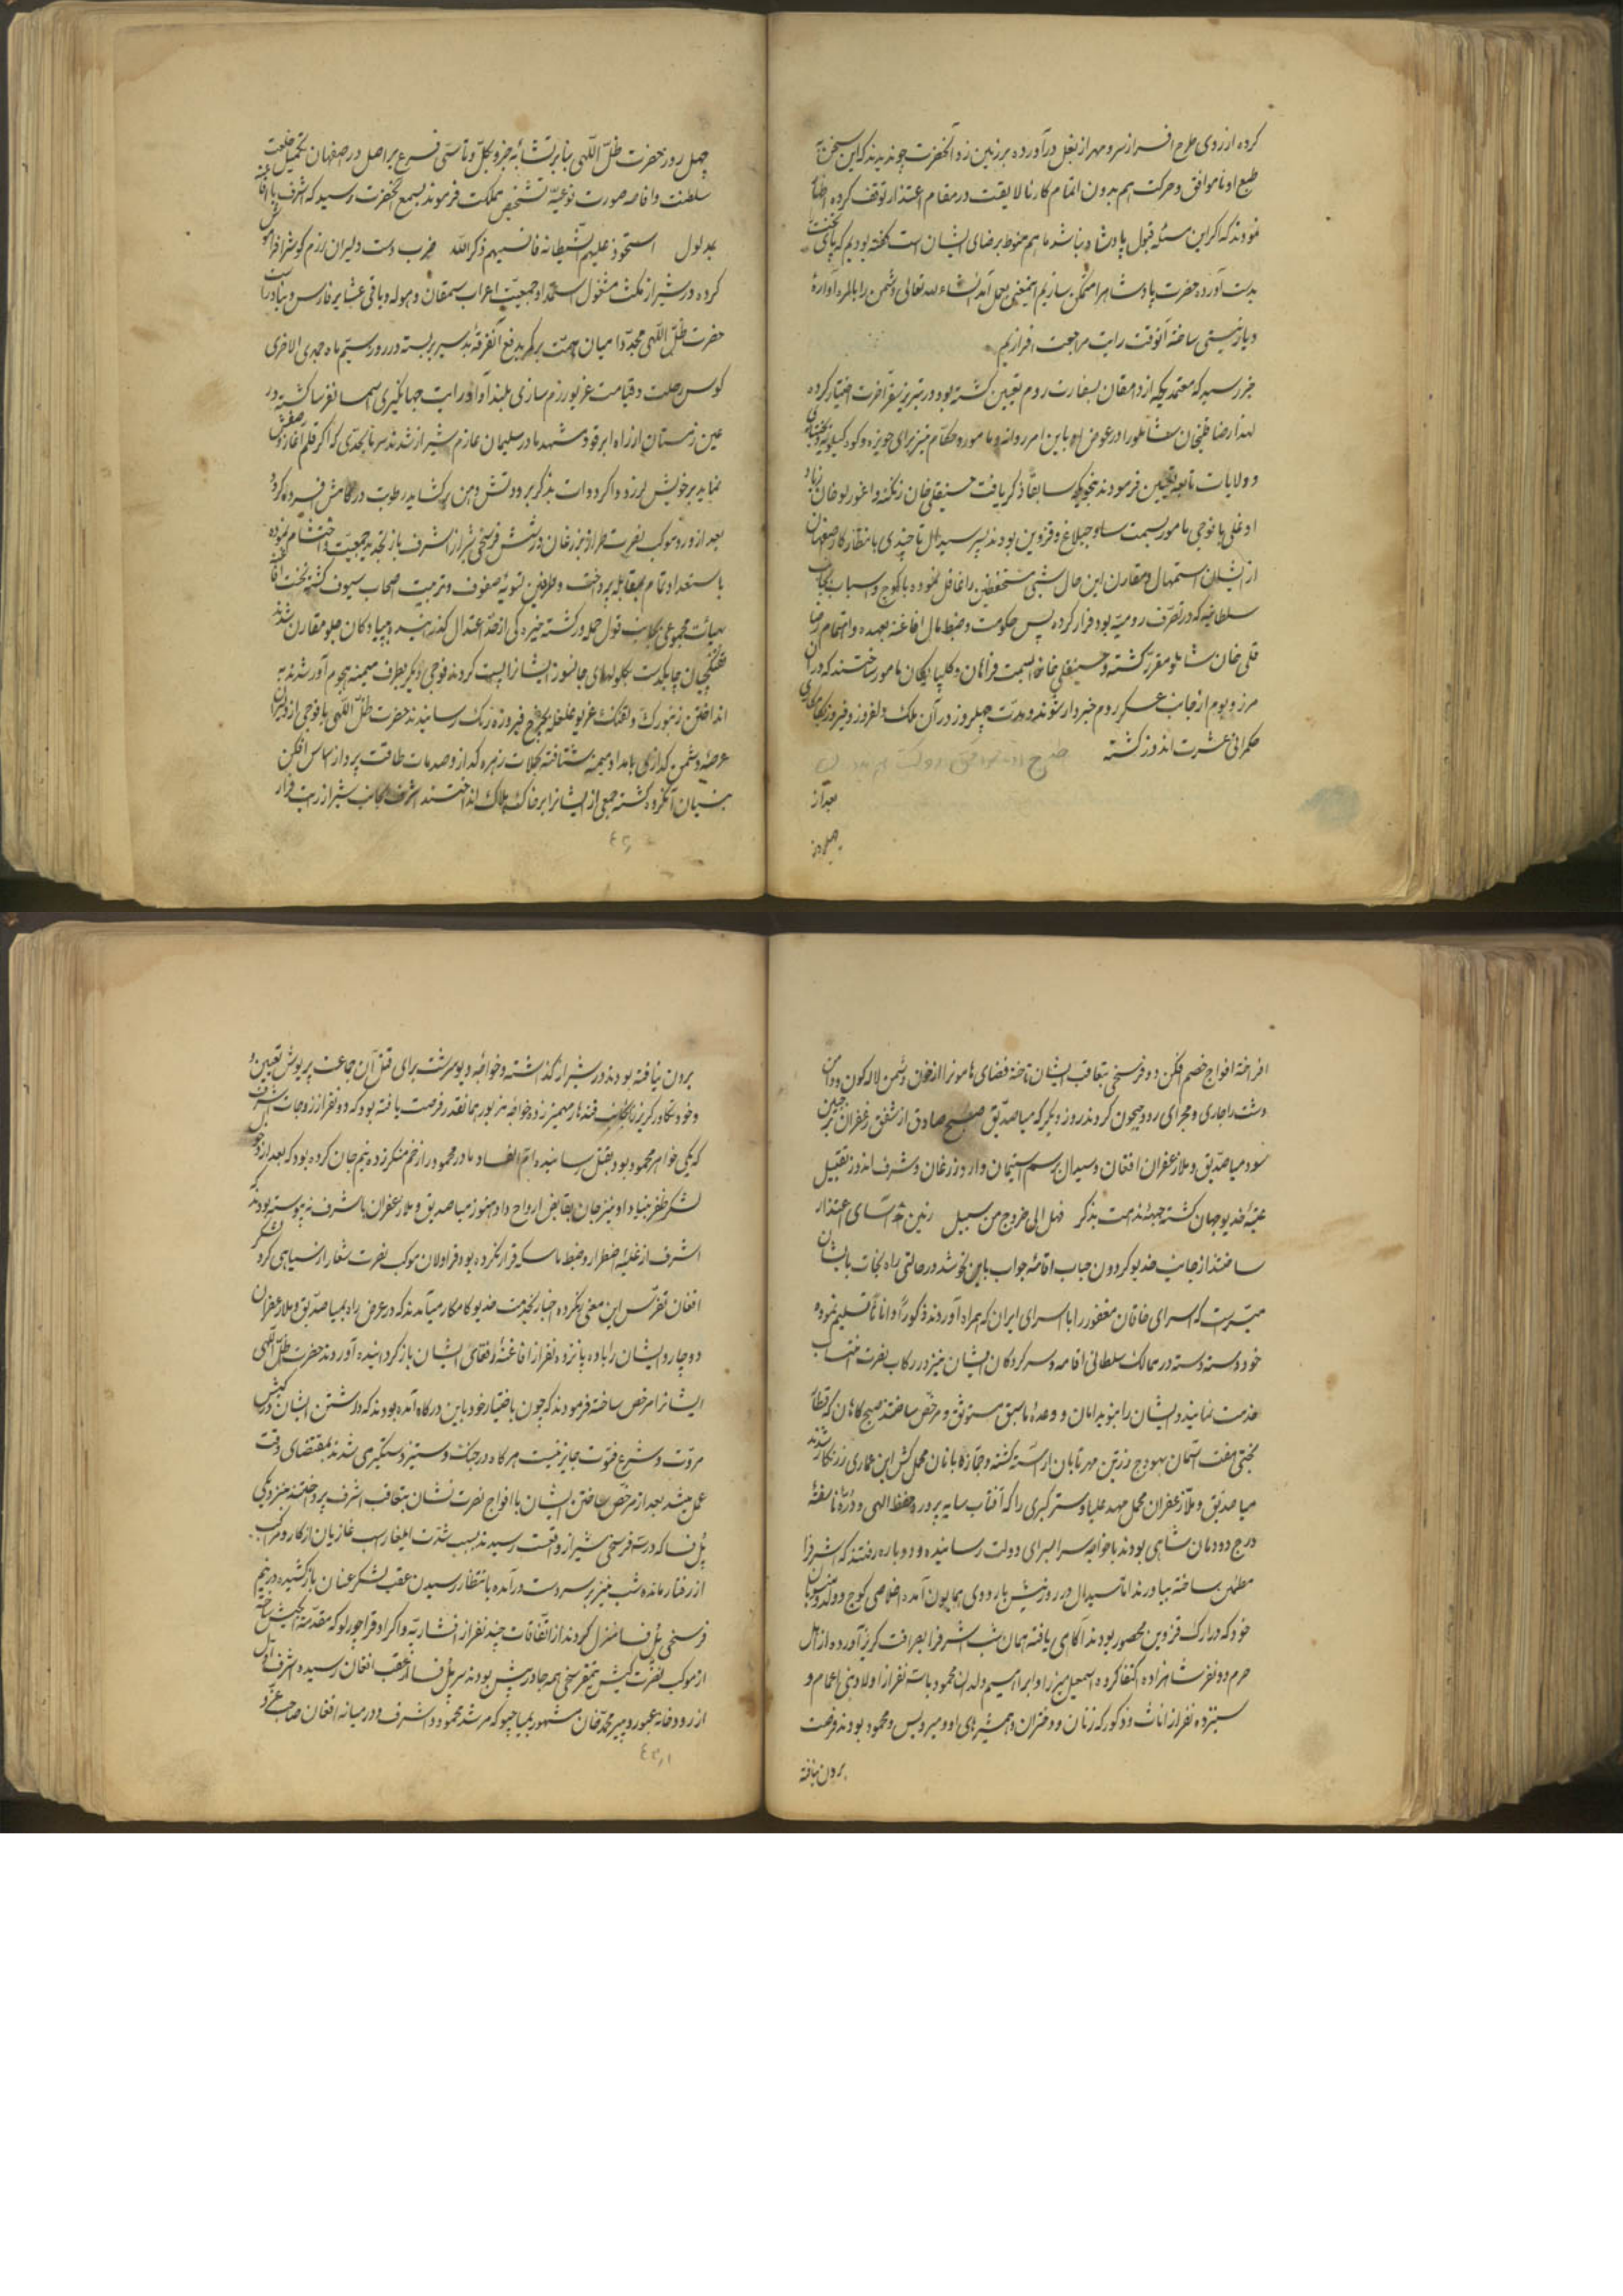 کرده از روی طرح افسر از سر و مهر از بغل درآورده بر زمین زد آنحضرت چون دیدند که این سخن با
طبع او ناموافق و حرکت هم بدون اتمام کار نالایقست در مقام اعتذار توقف کرده
نمودند که اگر این مسئله قبول پادشاه نباشد ما هم منوط برضای ایشان است گفته بودیم که پای تخت
بدست آورده حضرت پادشاه را متمکن سازیم اینمعنی بعمل آمد انشاء الله تعالی دشمن را بالمره آواره
دیار نیستی ساخته آنوقت رایت مراجعت افرازیم
خبر رسید که معتمدی که از دامغان بسفارت روم تعیین گشته بود در تبریز سفر آخرت اختیار کرده
لهذا رضا قلیخان شاملو را در عوض او باین امر روانه و مأمور و حکام نیز برای حویزه و کوه کیلویه و بختیاری
و ولایات تابعه تعیین فرمودند بنحوی که سابقا ذکر یافت حسینقلی خان زنگنه و اغورلو خان زیاد
اوغلی با فوجی مأمور بسمت ساوجبلاغ و قزوین بودند پسر سیدال تا چندی بانتظار کار اصفهان
از ایشان استمهال و مقارن این حال شبی مستحفظین را غافل نموده با کوچ و اسباب بجانب
سلطانیه که در تصرف رومیه بود فرار کرده پس حکومت و ضبط مال افاغنه بعهده و اهتمام رضا
قلی خان شاملو مقرر گشته و حسینقلی خانرا بسمت فراهان و گلپایگان مأمور ساختند که در آن
مرز و بوم از جانب عسکر روم خبردار شوند و مدت چهل روز در آن ملک دلفروز و فیروز بکامکاری
حکمرانی عشرت اندوز گشته
بعد از
چهل روز
چهل روز حضرت ظل اللهی بنا بر تشابه جزو بکل و تأسی فرع بر اصل در اصفهان بتکمیل خلعت
سلطنت و افاضه صورت نوعیه تشخیص مملکت فرمودند بسمع آنحضرت رسید که اشرف با افاغنه
بمدلول استحوذ علیهم الشیطان فانسیهم ذکر الله ضرب دست دلیران رزم کوش را فراموش
کرده در شیراز مکث مشغول استمداد و جمعیت اعراب سمقان و هوله و باقی عشایر فارس و بنادر است
حضرت ظل اللهی مجددا میان همت بر کمر بدفع آنفرقه بد سیر بر بسته در روز سیم ماه جمدی الاخری
کوس رحلت و قیامت غریو رزم سازی بلند آواز و رایت جهانگیری آسمانفرسا گشته در
عین زمستان از راه ابرقوه و مشهد مادر سلیمان عازم شیراز شدند سرما بحدی که اگر قلم آغاز وصفش
نماید بر خویش لرزد و اگر دوات بذکر برودتش دهن بر گشاید رطوبت در کامش فسرده گردد
بعد از ورود موکب نصرت طراز بزرغان در شش فرسخی شیراز اشرف باز بتجدید جمعیت و احتشام نموده
با استعداد تمام بمقابله پرداخت و طرفین تسویه صفوف و ترتیب اصحاب سیوف گشته نخست افاغنه
بهیأت مجموعی بجانب قول حمله ور گشته خیرگی از حد اعتدال گذرانیدند و پیادگان جلو مقارن شد
تفنگچیان چابکدست بگلوله های جانسوز ایشانرا پست کردند فوجی دیگر بطرف میمنه هجوم آور شده به
انداختن زنبورک و تفنگ غریو غلغله بچرخ فیروزه رنگ رسانیدند حضرت ظل اللهی با فوجی از دلیران
عرصه دشمن گدازی بامداد میمنه شتافته بحملات زهره گداز و صدمات طاقت پرداز اساس افکن
بنیان آنگروه گشته جمعی از ایشانرا بر خاک هلاک انداختند اشرف بجانب شیراز رایت فرار
افراخته افواج خصم افکن دو فرسخ بتعاقب ایشان تاخته فضای هامونرا از خون دشمن لاله گون و دامن
دشت را جاری و مجرای رود جیحون کردند روز دیگر که میا صدیق صبح صادق از شفق زعفران بر جبین
سود میا صدیق و ملا زعفران افغان و سیدال برسم استیمان وارد زرغان و شرف اندوز تقبیل
عتبه خدیو جهان گشته جبهه ندامت بذکر فهل الی خروج من سبیل رنین آسای اعتذار
ساختند از جانب خدیو گردون جناب اقامه جواب باین نحو شد در حالتی راه نجات بایشان
میسر است که اسرای خاقان مغفور را با اسرای ایران که همراه آوردند ذکورا و اناثا تسلیم نموده
خود دسته دسته در ممالک سلطانی اقامه و سرکردگان ایشان نیز در رکاب نصرت انتساب
خدمت نمایند و ایشان را بنوید امان و وعده ماسبق مستوثق و مرخص ساختند صبحگاهان که قطار
بختی هفت آسمان بهودج زرین مهر تابان آراسته گشته و جمازه بانان محمل کش این عماری زرنگار شدند
میا صدیق و ملا زعفران محمل مهد علیا و ستر کبری را که آفتاب سایه پرورده حفظ الهی و دره ناسفته
درج دودمان شاهی بودند با خواجه سرا بسرای دولت رسانیده و دوباره رفتند که اشرف را
مطمئن ساخته بیاورند اما سیدال در روز پیش باردوی همایون آمده اخلاصی کوچ و ولد و منسوبان
خود که در ارک قزوین محصور بودند آگاهی یافته همان شب اشرف را بصرافت گریز آورده از اهل
حرم دو نفر شاهزاده اکتفا کرده اسمعیل میرزا و ابراهیم ولدان محمود با سه نفر از اولاد بنی اعمام و
سیزده نفر از اناث و ذکور که زنان و دختران و همشیره های او و میرویس و محمود بودند فرصت
برون نیافته
برون نیافته بودند در شیراز گذاشته و خواجه دیو سرشت برای قتل آن جماعت پریوش تعیین و
و خود تکاور گریز را بجانب قندهار مهمیز زده خواجه مزبور همانقدر فرصت یافته بود که دو نفر از زوجات اشرف
که یکی خواهر محمود بود بقتل رسانیده و ام الفساد مادر محمود را زخم منکر زده نیم جان کرده بود که بعد از ورود
لشکر ظفر بنیاد او نیز جان بقابض ارواح داد و هنوز میا صدیق و ملا زعفران باشرف نپیوسته بودند که
اشرف از غلبه اضطرار و ضبط ماسکه قرار نکرده بود قراولان موکب نصرت شعار از سیاهی گرد لشکر
افغان تفرس این معنی نکرده اخبار بخدمت خدیو کامکار میآمدند که در عرض راه بمیا صدیق و ملا زعفران
دوچار و ایشان را با ده پانزده نفر از افاغنه و رفقای ایشان باز گردانیده آوردند حضرت ظل اللهی
ایشانرا مرخص ساخته فرمودند که چون باختیار خود باین درگاه آمده بودند که داشتن ایشان در کیش
مروت و شرع فتوت جایز نیست هر گاه در جنگ و ستیز دستگیری شدند بمقتضای وقت
عمل میشد بعد از مرخص ساختن ایشان با افواج نصرت نشان بتعاقب اشرف پرداختند بنزدیکی
پل فسا که در سه فرسخی شیراز واقعست رسیدند بسبب شدت ایلغار اسب غازیان از کار و مرکب
از رفتار مانده شب نیز بر سر دست درآمده بانتظار رسیدن عقب لشکر عنان باز کشیده در نیم
فرسخی پل فسا منزل کردند از اتفاقات چند نفر از افشاریه و اکراد قراچورلو که مقدمة الجیش ساخته
از موکب نصرت کیش نیمفرسخی همه جا در پیش بودند سر پل فسا از عقب افغان رسیده اشرف اول
از رودخانه عبور و پیر محمد خان مشهور بمیاجیو که مرشد محمود و اشرف و در میانه افغان صاحب